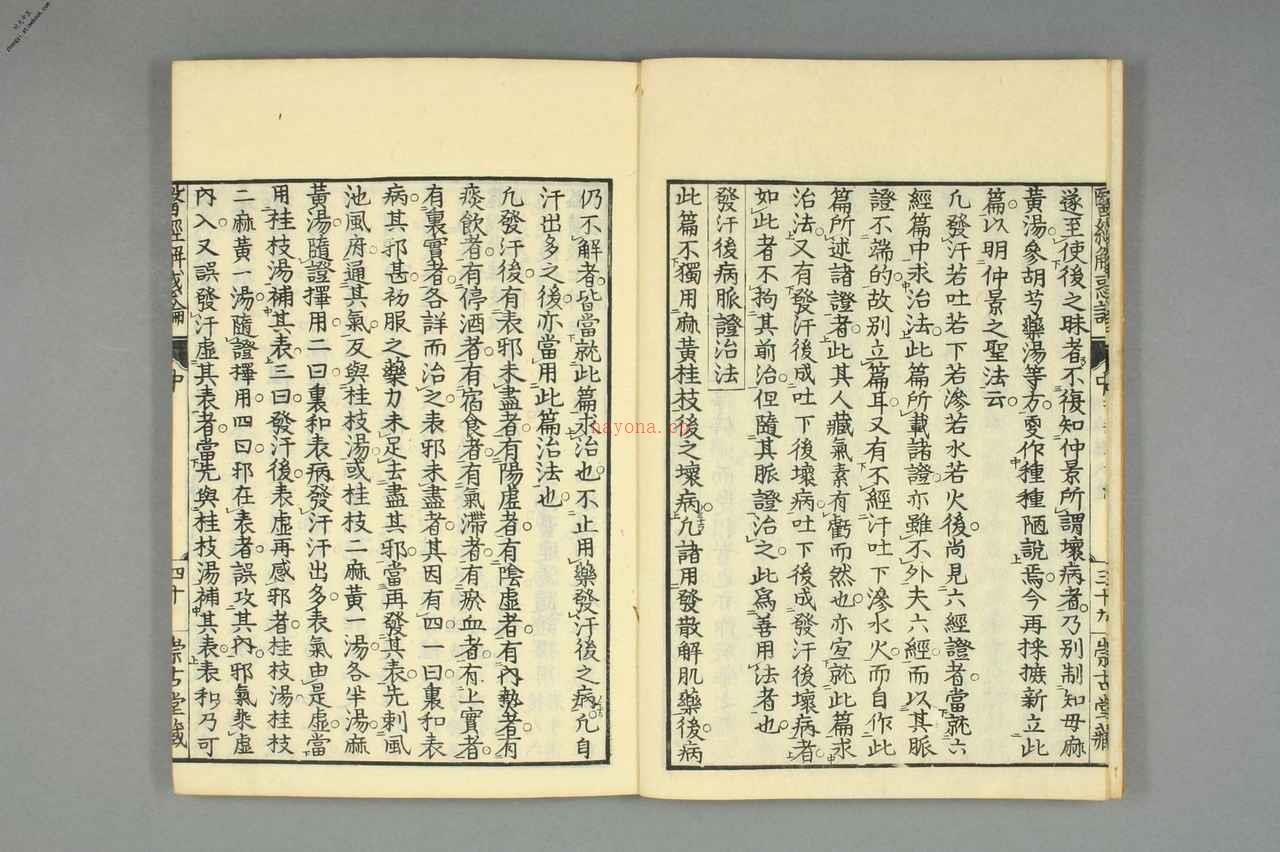 醫經解惑論 中 三十九 崇古堂藏
遂至使後之昧者不復知仲景所謂壞病者乃別制知母麻
黃湯參胡芍藥湯等方更作種種陋說焉今再採摭新立此
篇以明仲景之聖法云
凡發汗若吐若下若滲若水若火後尚見六經證者當就六
經篇中求治法此篇所載諸證亦雖不外夫六經而以其脈
證不端的故別立篇耳又有不經汗吐下滲水火而自作此
篇所述諸證者此其人藏氣素有虧而然也亦宜就此篇求
治法又有發汗後成吐下後壞病吐下後成發汗後壞病者
如此者不拘其前治但隨其脈證治之此爲善用法者也
發汗後病脈證治法
此篇不獨用麻黃桂枝後之壞病凡諸用發散解肌藥後病
仍不解者皆當就此篇求治也不止用藥發汗後之病凡自
汗出多之後亦當用此篇治法也
凡發汗後有表邪未盡者有陽虛者有陰虛者有內熱者有
痰飲者有停酒者有宿食者有氣滯者有瘀血者有上實者
有裏實者各詳而治之表邪未盡者其因有四一曰裏和表
病其邪甚初服之藥力未足去盡其邪當再發其表先刺風
池風府通其氣反與桂枝湯或桂枝二麻黃一湯各半湯麻
黃湯隨證擇用二曰裏和表病發汗汗出多表氣由是虛當
用桂枝湯補其表三曰發汗後表虛再感邪者桂枝湯桂枝
二麻黃一湯隨證擇用四曰邪在表者誤攻其內邪氣乘虛
內入又誤發汗虛其表者當先與桂枝湯補其表表和乃可
醫經解惑論 中 四十 崇古堂藏
nayona.cn